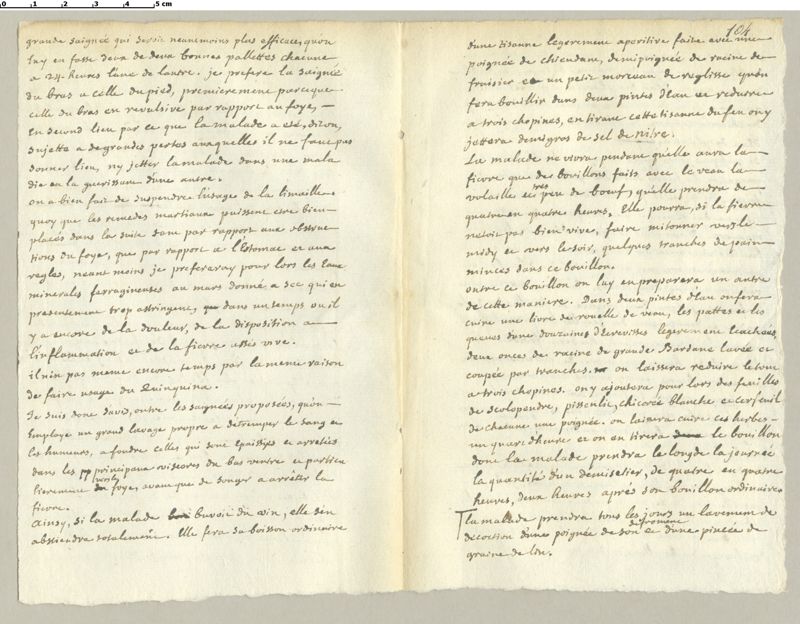 0 1 2 3 4 5 cm
grande saignée qui seroit neanmoins plus efficace, quon
luy en fasse deux de deux bonnes pallettes chacune
a 24 heures l'une de l'autre. je prefere la saignée
du bras a celle du pied, premierement parceque
celle du bras en revulsive par rapport au foye, —
en second lieu par ce que la malade a esté, dit on,
sujette a de grandes pertes auxquelles il ne faut pas
donner lieu, ny jetter la malade dans une mala
die en la guerissant d'une autre.
on a bien fait de suspendre l'usage de la limaille.
quoy que les remedes martiaux puissent estre bien
placés dans la suite tant par rapport aux obstruc
tions du foye, que par rapport a l'Estomac et aux
regles, neant moins je prefereray pour lors les Eaux
minerales ferrugineuses au mars donné a sec qui en
presentement trop astringent, dans un temps ou il
y a encore de la douleur, de la disposition a —
l'inflammation et de la fievre assés vive.
il n'en pas meme encore temps par la meme raison
de faire usage du Quinquina.
Je suis donc d'avis, outre les saignées proposées, qu'on —
Employe un grand lavage propre a detremper le sang et
les humeurs, a fondre celles qui sont Epaissies et arretées
dans les principaux visceres du bas ventre et particu
lierement foye, avant que de songer a arrêter la
fievre.
Ainsy, si la malade buvoit du vin, elle s'en
abstiendra totalement. Elle fera sa boisson ordinaire
104
d'une tisanne legerement aperitive faite avec une
poignée de chiendent, demi poignée de racine de
fraisier et un petit morceau de reglisse qu'on
fera bouillir dans deux pintes d'eau et reduire
a trois chopines, en tirant cette tisanne du feu on y
jettera demi gros de sel de nitre.
La malade ne vivra pendant qu'elle aura la
fievre que des bouillons faits avec le veau la
volaille et tres peu de boeuf, qu'elle prendra de —
quatre en quatre heures. Elle pourra, si la fievre
n'etoit pas bien vive, faire mitonner vers le —
midy et vers le soir, quelques tranches de pain —
minces dans ce bouillon.
outre ce bouillon on luy en preparera un autre
de cette maniere. Dans deux pintes d'eau on fera
cuire une livre de rouelle de veau, les pattes et les
queues d'une douzaine d'Ecrevisses legerement
deux onces de racine de grande Bardane lavée et
coupée par tranches. on laissera reduire le tout
a trois chopines. on y ajoutera pour lors des feuilles
de scolopendre, pissenlit, chicorée blanche et cerfeuil
de chacune une poignée. on laissera cuire ces herbes —
un quart d'heure et on en tirera le bouillon
dont la malade prendra le long de la journée
la quantité d'un demi setier, de quatre en quatre
heures, deux heures aprés son bouillon ordinaire.
la malade prendra tous les jours un lavement de
decoction d'une poignée de son de froment et d'une pincée de
graine de lin.